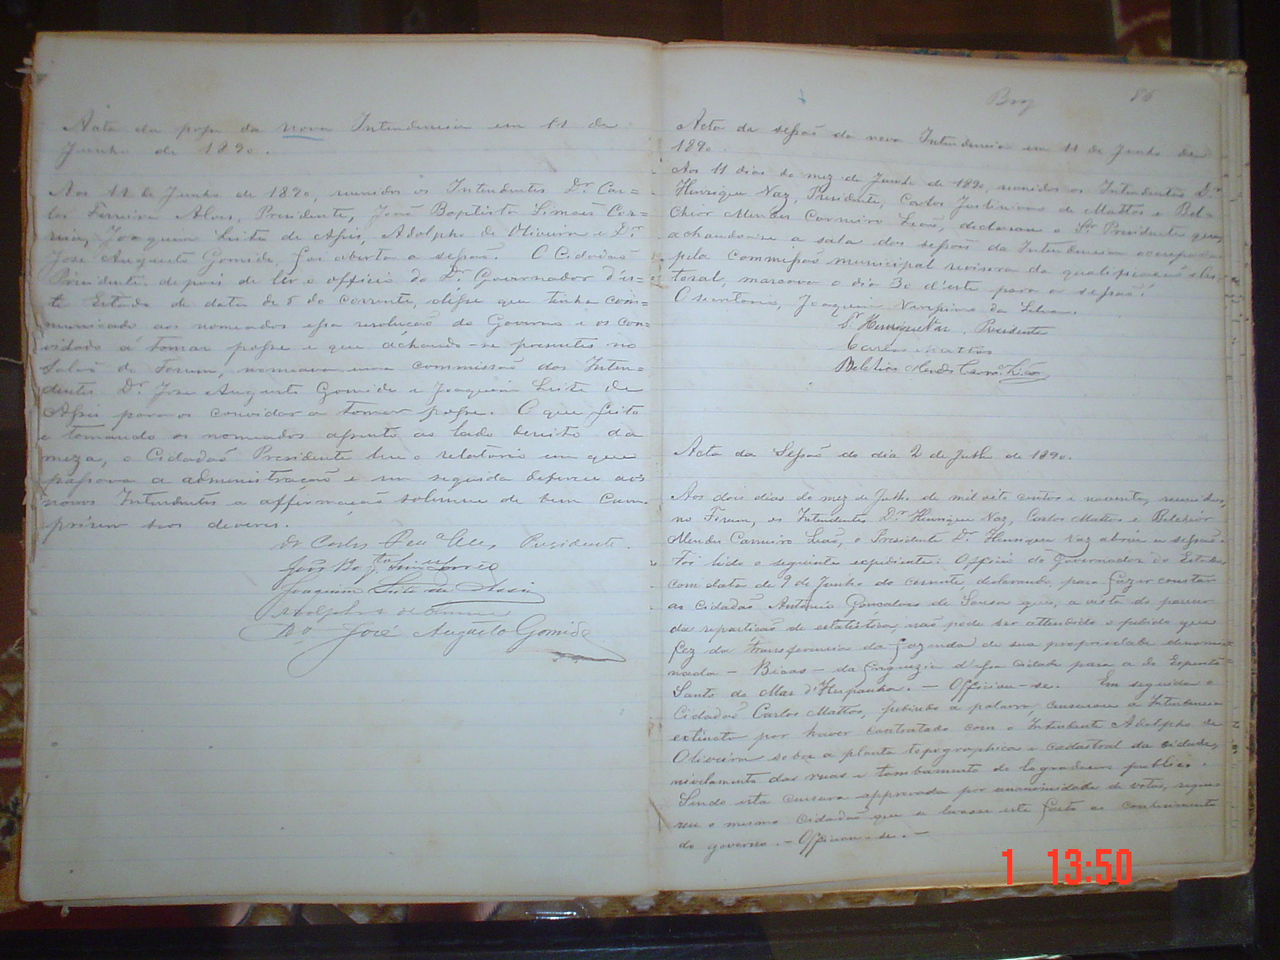 Acta da posse da nova Intendencia em 11 de
Junho de 1890.
Aos 11 de Junho de 1890, reunidos os Intendentes Dr. Car=
los Ferreira Alves, Presidente, João Baptista Simões Cor=
rêa, Joaquim Leite de Assis, Adolpho de Oliveira e Dr.
José Augusto Gomide, foi aberta a sessão. O Cidadão
Presidente depois de ler o officio do Dr. Governador d'es=
te Estado de data de 5 do corrente, disse que tinha com=
municado aos nomeados essa resolução do Governo e os con=
vidado á tomar posse e que achando-se presentes no
Salão do Forum, nomeava uma commissão dos Inten=
dentes Dr. José Augusto Gomide e Joaquim Leite de
Assis para os convidar a tomar posse. O que feito
e tomando os nomeados assento ao lado direito da
meza, o Cidadão Presidente leu o relatorio em que
passava a administração e em seguida deferiu aos
novos Intendentes a affirmação solemne de bem cum=
prirem seos deveres.
Dr Carlos Ferra Alves, Presidente.
João Bapta Simões Corrêa
Joaquim Leite de Assis
Adolpho de Oliveira
Dor José Augusto Gomide
86
Acta da sessão da nova Intendencia em 11 de Junho de
1890.
Aos 11 dias do mez de Junho de 1890, reunidos os Intendentes Dr.
Henrique Vaz, Presidente, Carlos Justiniano de Mattos e Bel=
chior Mendes Carneiro Leão, declarou o Snr. Presidente que,
achando-se a sala das sessões da Intendencia occupada
pela Commissão municipal revisora da qualificação elei=
toral, marcava o dia 30 d'este para a sessão.
O secretario, Joaquim da Silva.
Dr Henrique Vaz, Presidente
Carlos Mattos
Belchior Mendes Carnro Leão
Acta da Sessão do dia 2 de Julho de 1890.
Aos dois dias do mez de Julho de mil oito centos e noventa, reunidos,
no Forum, os Intendentes Dr. Henrique Vaz, Carlos Mattos e Belchior
Mendes Carneiro Leão, o Presidente Dr. Henrique Vaz abriu a sessão.
Foi lido o seguinte expediente: Officio do Governador do Estado,
com data de 9 de Junho do corrente declarando, para fazer constar
ao Cidadão Antonio Gonçalves de Souza que, a vista do parecer
da repartição de estatistica, não pode ser attendido o pedido que
fez da transferencia da fazenda de sua propriedade denomi=
nada — Bicas — da freguezia d'essa Cidade para a do Espirito
Santo do Mar d'Hespanha. — Officiou-se. Em seguida o
Cidadão Carlos Mattos, pedindo a palavra, censurou a Intendencia
extincta por haver contratado com o Intendente Adolpho de
Oliveira sobre a planta topographica e cadastral da cidade,
nivelamento das ruas e tombamento de logradouros publicos.
Sendo esta censura approvada por unanimidade de votos, reque=
reu o mesmo Cidadão que se levasse este facto ao conhecimento
do governo. — Officiou-se. —
1 13:50